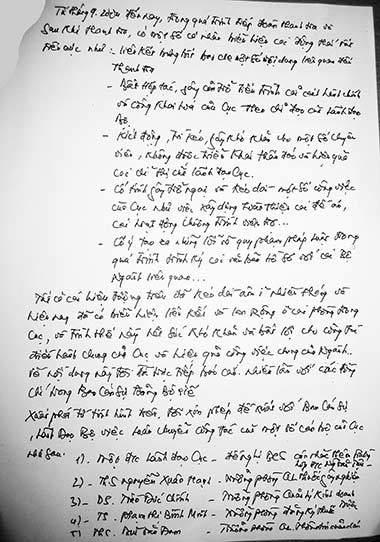 Từ tháng 9. 2011 đến nay, trong quá trình tiếp đoàn thanh tra và
sau khi thanh tra, có một số cá nhân biểu hiện các động thái rất
tiêu cực như: liên kết thông tin sai cho một số nội dung liên quan đến
Thanh tra
- Bất hợp tác, gây cản trở tiến trình cải cách hành chính
và công khai hoá của Cục theo chỉ đạo của Lãnh đạo
Bộ.
- Kích động, lôi kéo, gây khó khăn cho một số chuyên
viên, không được triển khai thấu đáo và hiệu quả
các chỉ thị của lãnh đạo Cục.
- Cố tình gây trở ngại và kéo dài một số công việc
của Cục như việc xây dựng hoàn thiện các đề án,
các hoạt động thông tin
- Cố ý tạo ra những lỗi vi quy phạm pháp luật trong
quá trình trình ký các văn bản hồ sơ với các Bộ
Ngành liên quan...
Tất cả các hiện tượng trên đã kéo dài âm ỉ nhiều tháng và
nay đã có biểu hiện liên kết và lan rộng ở các phòng trong
Cục, và tình thế này hết sức khó khăn và bất lợi cho công tác
điều hành chung của Cục và hiệu quả công việc chung của Ngành.
Về nội dung này tôi đã trực tiếp báo cáo nhiều lần với các đồng
chí trong Ban Cán sự Đảng Bộ Y tế
Xuất phát từ tình hình trên, tôi xin phép đề xuất với Ban Cán sự,
Lãnh đạo Bộ việc luân chuyển công tác của một số cán bộ của Cục
như sau:
1). Một đ/c Lãnh đạo Cục - đề nghị BCS
2) - ThS Nguyễn Xuân Hoạt - Trưởng phòng QL thuốc
3) - DS. Chính - Trưởng phòng Quản lý Kinh doanh
4) - TS. Phạm Thị Bình Minh - Trưởng phòng Đăng ký thuốc
5) - ThS. - Trưởng phòng QL